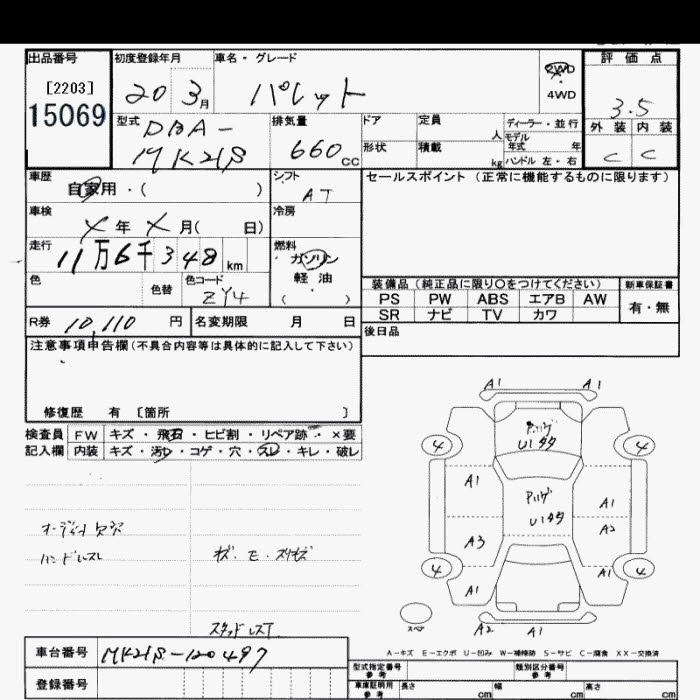 出品番号 初度登録年月 車名・グレード 評価点
[2203] 20 3月 パレット 2WD 4WD 3.5
15069 型式 DBA- 排気量 ドア 定員 人 ディーラー・並行 外装 内装
MK21S 660cc 形状 積載 kg モデル年式 年 ハンドル 左・右 C C
車歴 自家用・( ) シフト AT セールスポイント(正常に機能するものに限ります)
車検 X年 X月( 日) 冷房
走行 11万6千348km 燃料 ガソリン
色 色替 色コード ZY4 軽油 ( )
装備品(純正品に限り○をつけてください) 新車保証書
PS PW ABS エアB AW 有・無
SR ナビ TV カワ
R券 10,110円 名変期限 月 日 後日品
注意事項申告欄(不具合内容等は具体的に記入して下さい)
修復歴 有 〔箇所 〕
検査員 FW キズ・飛石・ヒビ割・リペア跡・×要
記入欄 内装 キズ・汚れ・コゲ・穴・スレ・キレ・破レ
A1 A1
U1タタ
4 4
A1 A1
U1タタ
A2
A3
4 A1 4
A1
スペア
A2 A1
オーディオ欠穴
ハンドルスレ
キズ・モ・スリキズ
スタッドレスT
A-キズ E-エクボ U-凹み W-補修跡 S-サビ C-腐食 XX-交換済
車台番号 MK21S-120497
登録番号
型式指定番号 参考 類別区分番号 参考
車庫証明用 参考 長さ cm 幅 cm 高さ cm